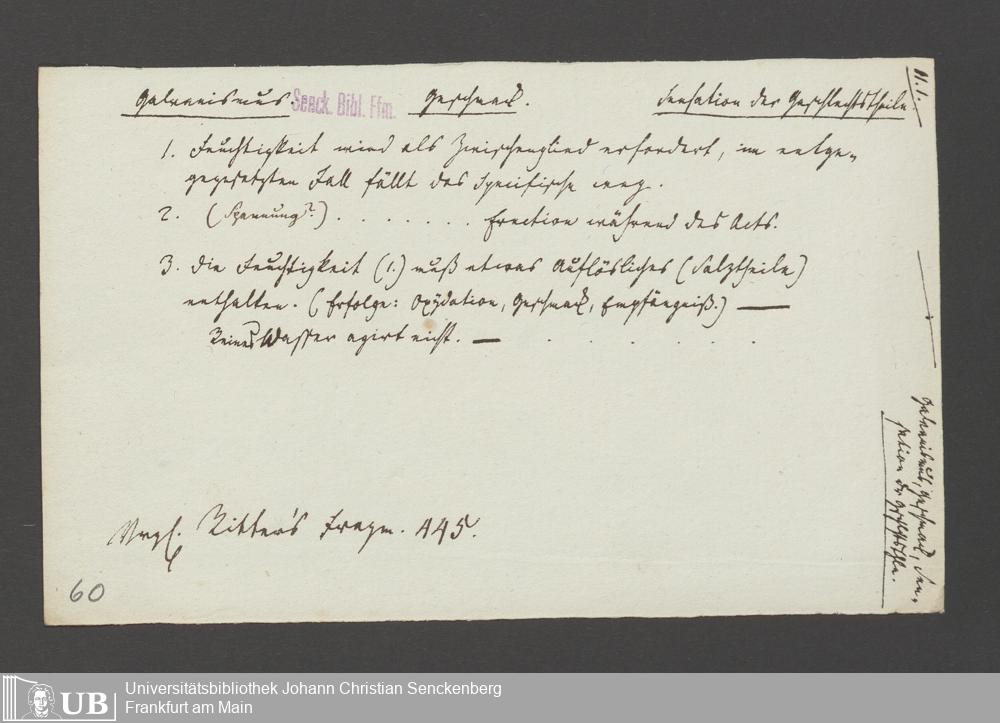 N. 1.
Galvanismus. Senck. Bibl. Ffm. Geschmack. Sensation der Geschlechtstheile.
1. Feuchtigkeit wird als Zwischenglied erfordert, im entge-
gegesetzten Fall fällt das Specifische weg.
2. (Spannung?) . . . . . . . . Erection während des Acts.
3. Die Feuchtigkeit (1.) muß etwas Auflösliches (Salztheile)
enthalten. (Erfolge: Oxydation, Geschmack, Empfängniß.) —
Reines Wasser agirt nicht. — . . . . . .
Vergl. Ritter's Fragm. 445.
60
Galvanismus, Geschmack, Sen-
sation der Geschlthle.
UB
Universitätsbibliothek Johann Christian Senckenberg
Frankfurt am Main